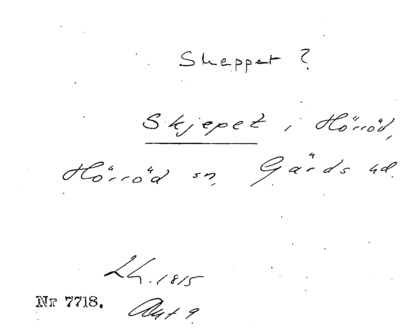 Skeppet ?
Skjepet i Hörröd,
Hörröd sn, Gärds hd.
Lh. 1815
Nr 7718. Akt 9